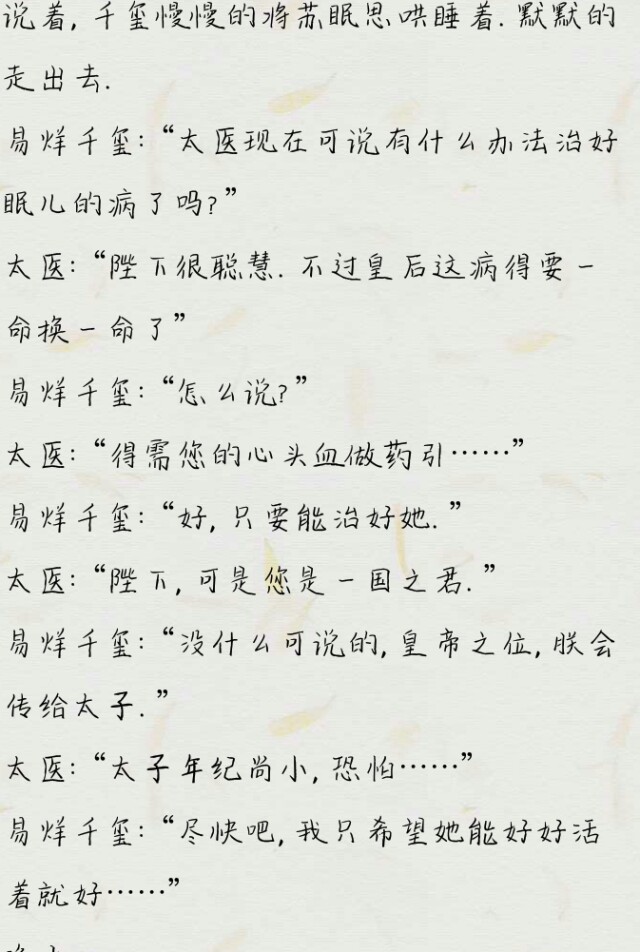 说着，千玺慢慢的将苏眠思哄睡着．默默的
走出去．
易烊千玺：“太医现在可说有什么办法治好
眠儿的病了吗？”
太医：“陛下很聪慧．不过皇后这病得要一
命换一命了”
易烊千玺：“怎么说？”
太医：“得需您的心头血做药引……”
易烊千玺：“好，只要能治好她．”
太医：“陛下，可是您是一国之君．”
易烊千玺：“没什么可说的，皇帝之位，朕会
传给太子．”
太医：“太子年纪尚小，恐怕……”
易烊千玺：“尽快吧，我只希望她能好好活
着就好……”